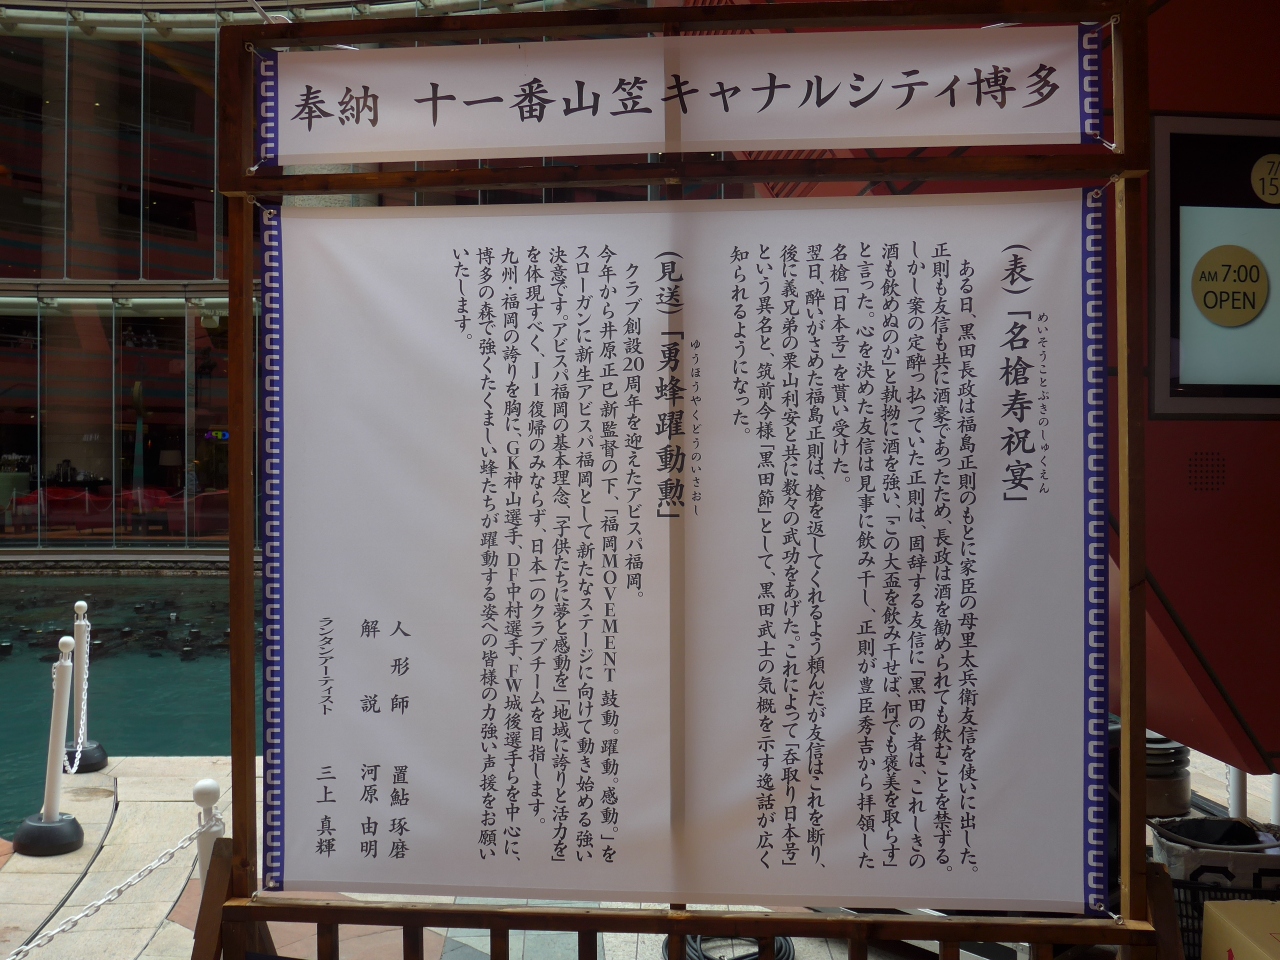 奉納 十一番山笠キャナルシティ博多
(表)「名槍寿祝宴」
めいそうことぶきのしゅくえん
ある日、黒田長政は福島正則のもとに家臣の母里太兵衛友信を使いに出した。
正則も友信も共に酒豪であったため、長政は酒を勧められても飲むことを禁ずる。
しかし案の定酔っ払っていた正則は、固辞する友信に「黒田の者は、これしきの
酒も飲めぬのか」と執拗に酒を強い、「この大盃を飲み干せば、何でも褒美を取らす」
と言った。心を決めた友信は見事に飲み干し、正則が豊臣秀吉から拝領した
名槍「日本号」を貰い受けた。
翌日、酔いがさめた福島正則は、槍を返してくれるよう頼んだが友信はこれを断り、
後に義兄弟の栗山利安と共に数々の武功をあげた。これによって「呑取り日本号」
という異名と、筑前今様「黒田節」として、黒田武士の気概を示す逸話が広く
知られるようになった。
(見送)「勇蜂躍動勲」
ゆうほうやくどうのいさおし
クラブ創設20周年を迎えたアビスパ福岡。
今年から井原正巳新監督の下、「福岡MOVEMENT 鼓動。躍動。感動。」を
スローガンに新生アビスパ福岡として新たなステージに向けて動き始める強い
決意です。アビスパ福岡の基本理念、「子供たちに夢と感動を」「地域に誇りと活力を」
を体現すべく、J1復帰のみならず、日本一のクラブチームを目指します。
九州・福岡の誇りを胸に、GK神山選手、DF中村選手、FW城後選手らを中心に、
博多の森で強くたくましい蜂たちが躍動する姿への皆様の力強い声援をお願い
いたします。
人形師 置鮎琢磨
解説 河原由明
ランタンアーティスト 三上真輝
7/
15
AM 7:00
OPEN